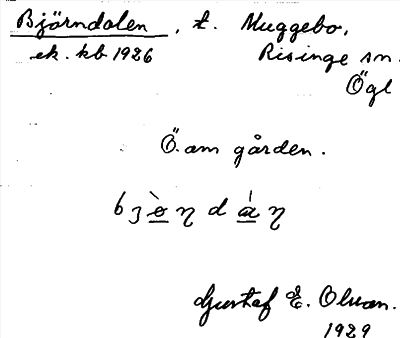 Björndalen, t. Muggebo,
ek. kb 1926 Risinge sn.
Ögl
Ö. om gården.
Gustaf E. Olsson.
1929